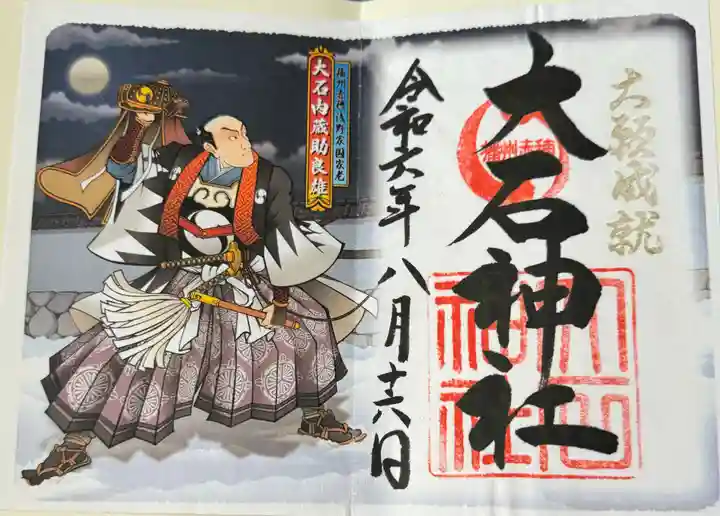 大願成就
播州赤穂
大石神社
大石神社
令和六年八月十六日
播州赤穂浅野家国家老
大石内蔵助良雄